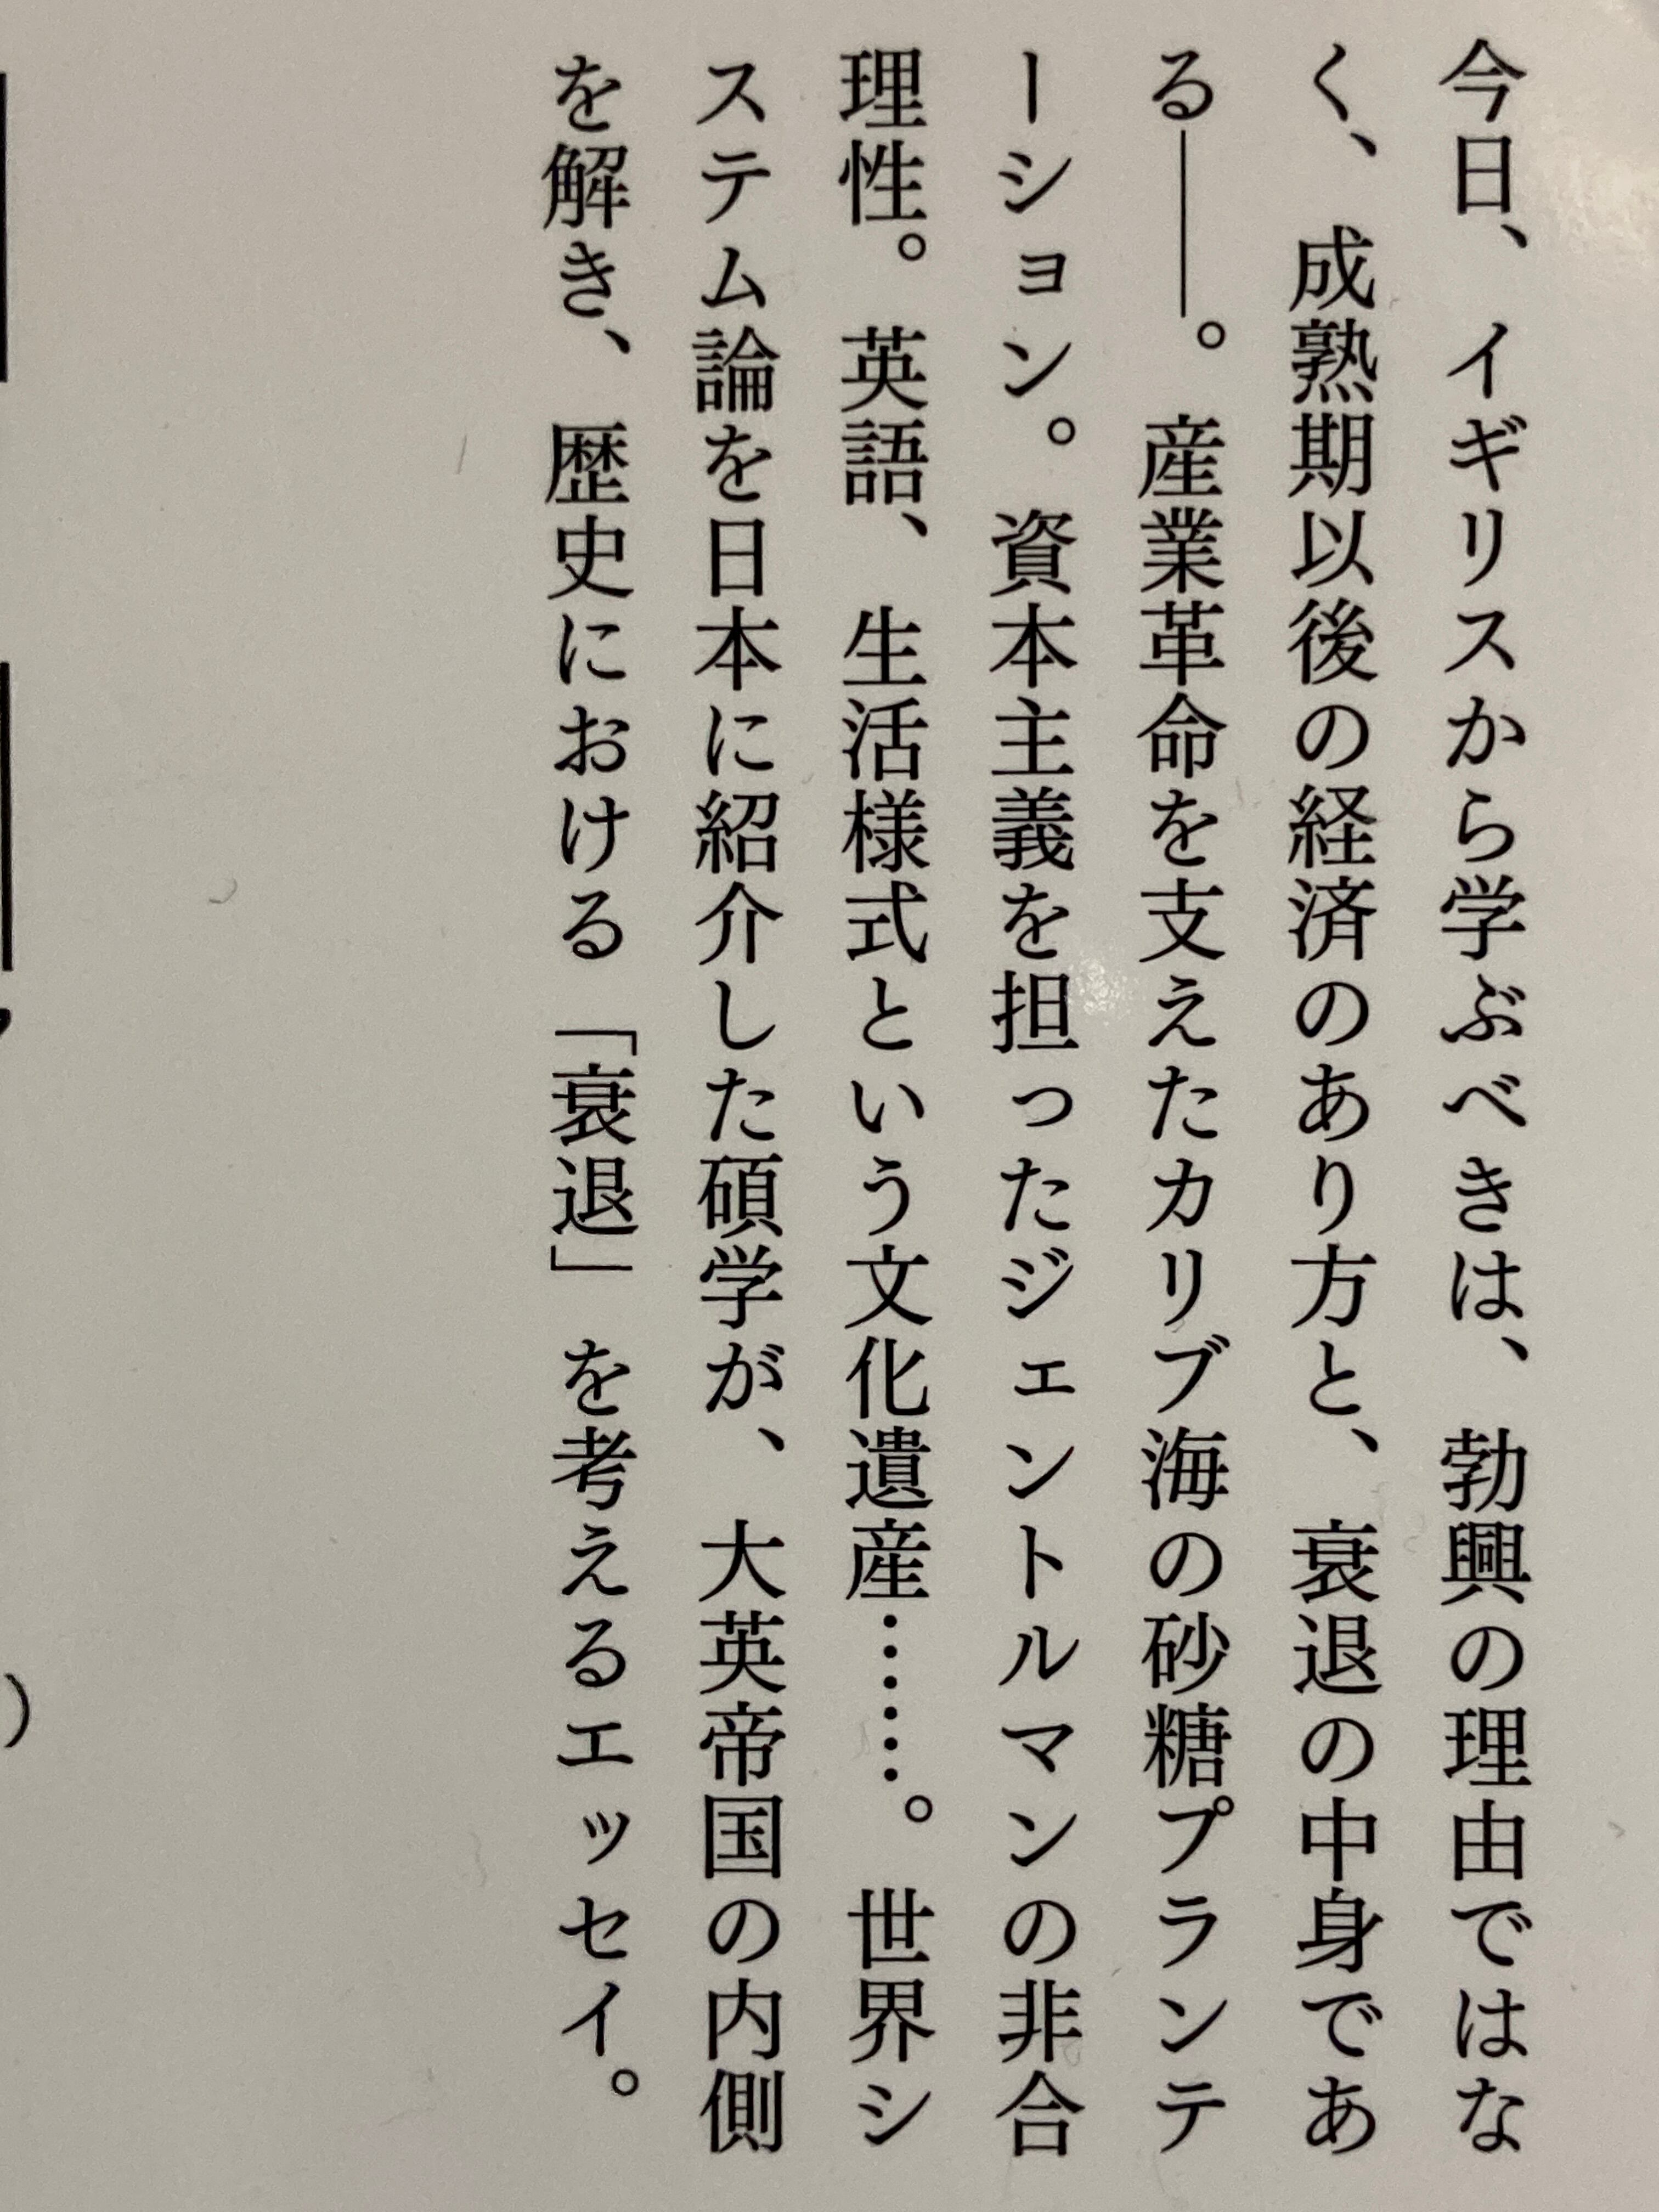 今日、イギリスから学ぶべきは、勃興の理由ではな
く、成熟期以後の経済のあり方と、衰退の中身であ
る――。産業革命を支えたカリブ海の砂糖プランテ
ーション。資本主義を担ったジェントルマンの非合
理性。英語、生活様式という文化遺産……。世界シ
ステム論を日本に紹介した碩学が、大英帝国の内側
を解き、歴史における「衰退」を考えるエッセイ。